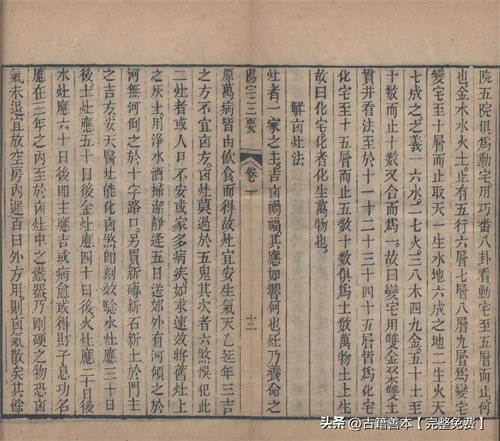 院五院俱爲動宅用巧番八卦看動宅五層而止何
也金木水火土止有五行六層七層八層九層爲變宅
變宅至十層而止取天一生水地六成之地二生火天
七成之之義一六水二七火三八木四九金五十土至
十數而止十數又合而爲一故曰變宅用雙金雙木雙土
貫井看法至於十一十二十三十四十五層皆爲化宅
化宅至十五層而止五數十數俱爲土數萬物土上生
故曰化宅化者生萬物也
解凶灶法
灶者一家之主吉凶禍福其應如響何也灶乃養命之
陽宅三要
卷一
十三
原萬病皆由飲食而得故灶宜安生氣天乙延年三吉
之方不宜凶方凶灶莫過於五鬼其次者六煞悞犯此
二灶者或人口不安或家多病疾如求速效將舊灶上
之灰土用淨水洒掃潔靜逢五日送郊外有河傾之於
河無河倒於十字路口另買新磚新石新土於門主
之吉方安天醫灶能化凶煞即刻效驗水灶應三十日
後土灶應五十日後金灶應四十日後火灶應二十日後
水灶應六十日後即應吉或病愈或得財子息功名
應在三年之內至於凶灶中之鐵器乃剛硬之物恐凶
氣未退宜放空房內過百日外方用則凶氣散矣其餘
头条 @古籍善本【完整免费】